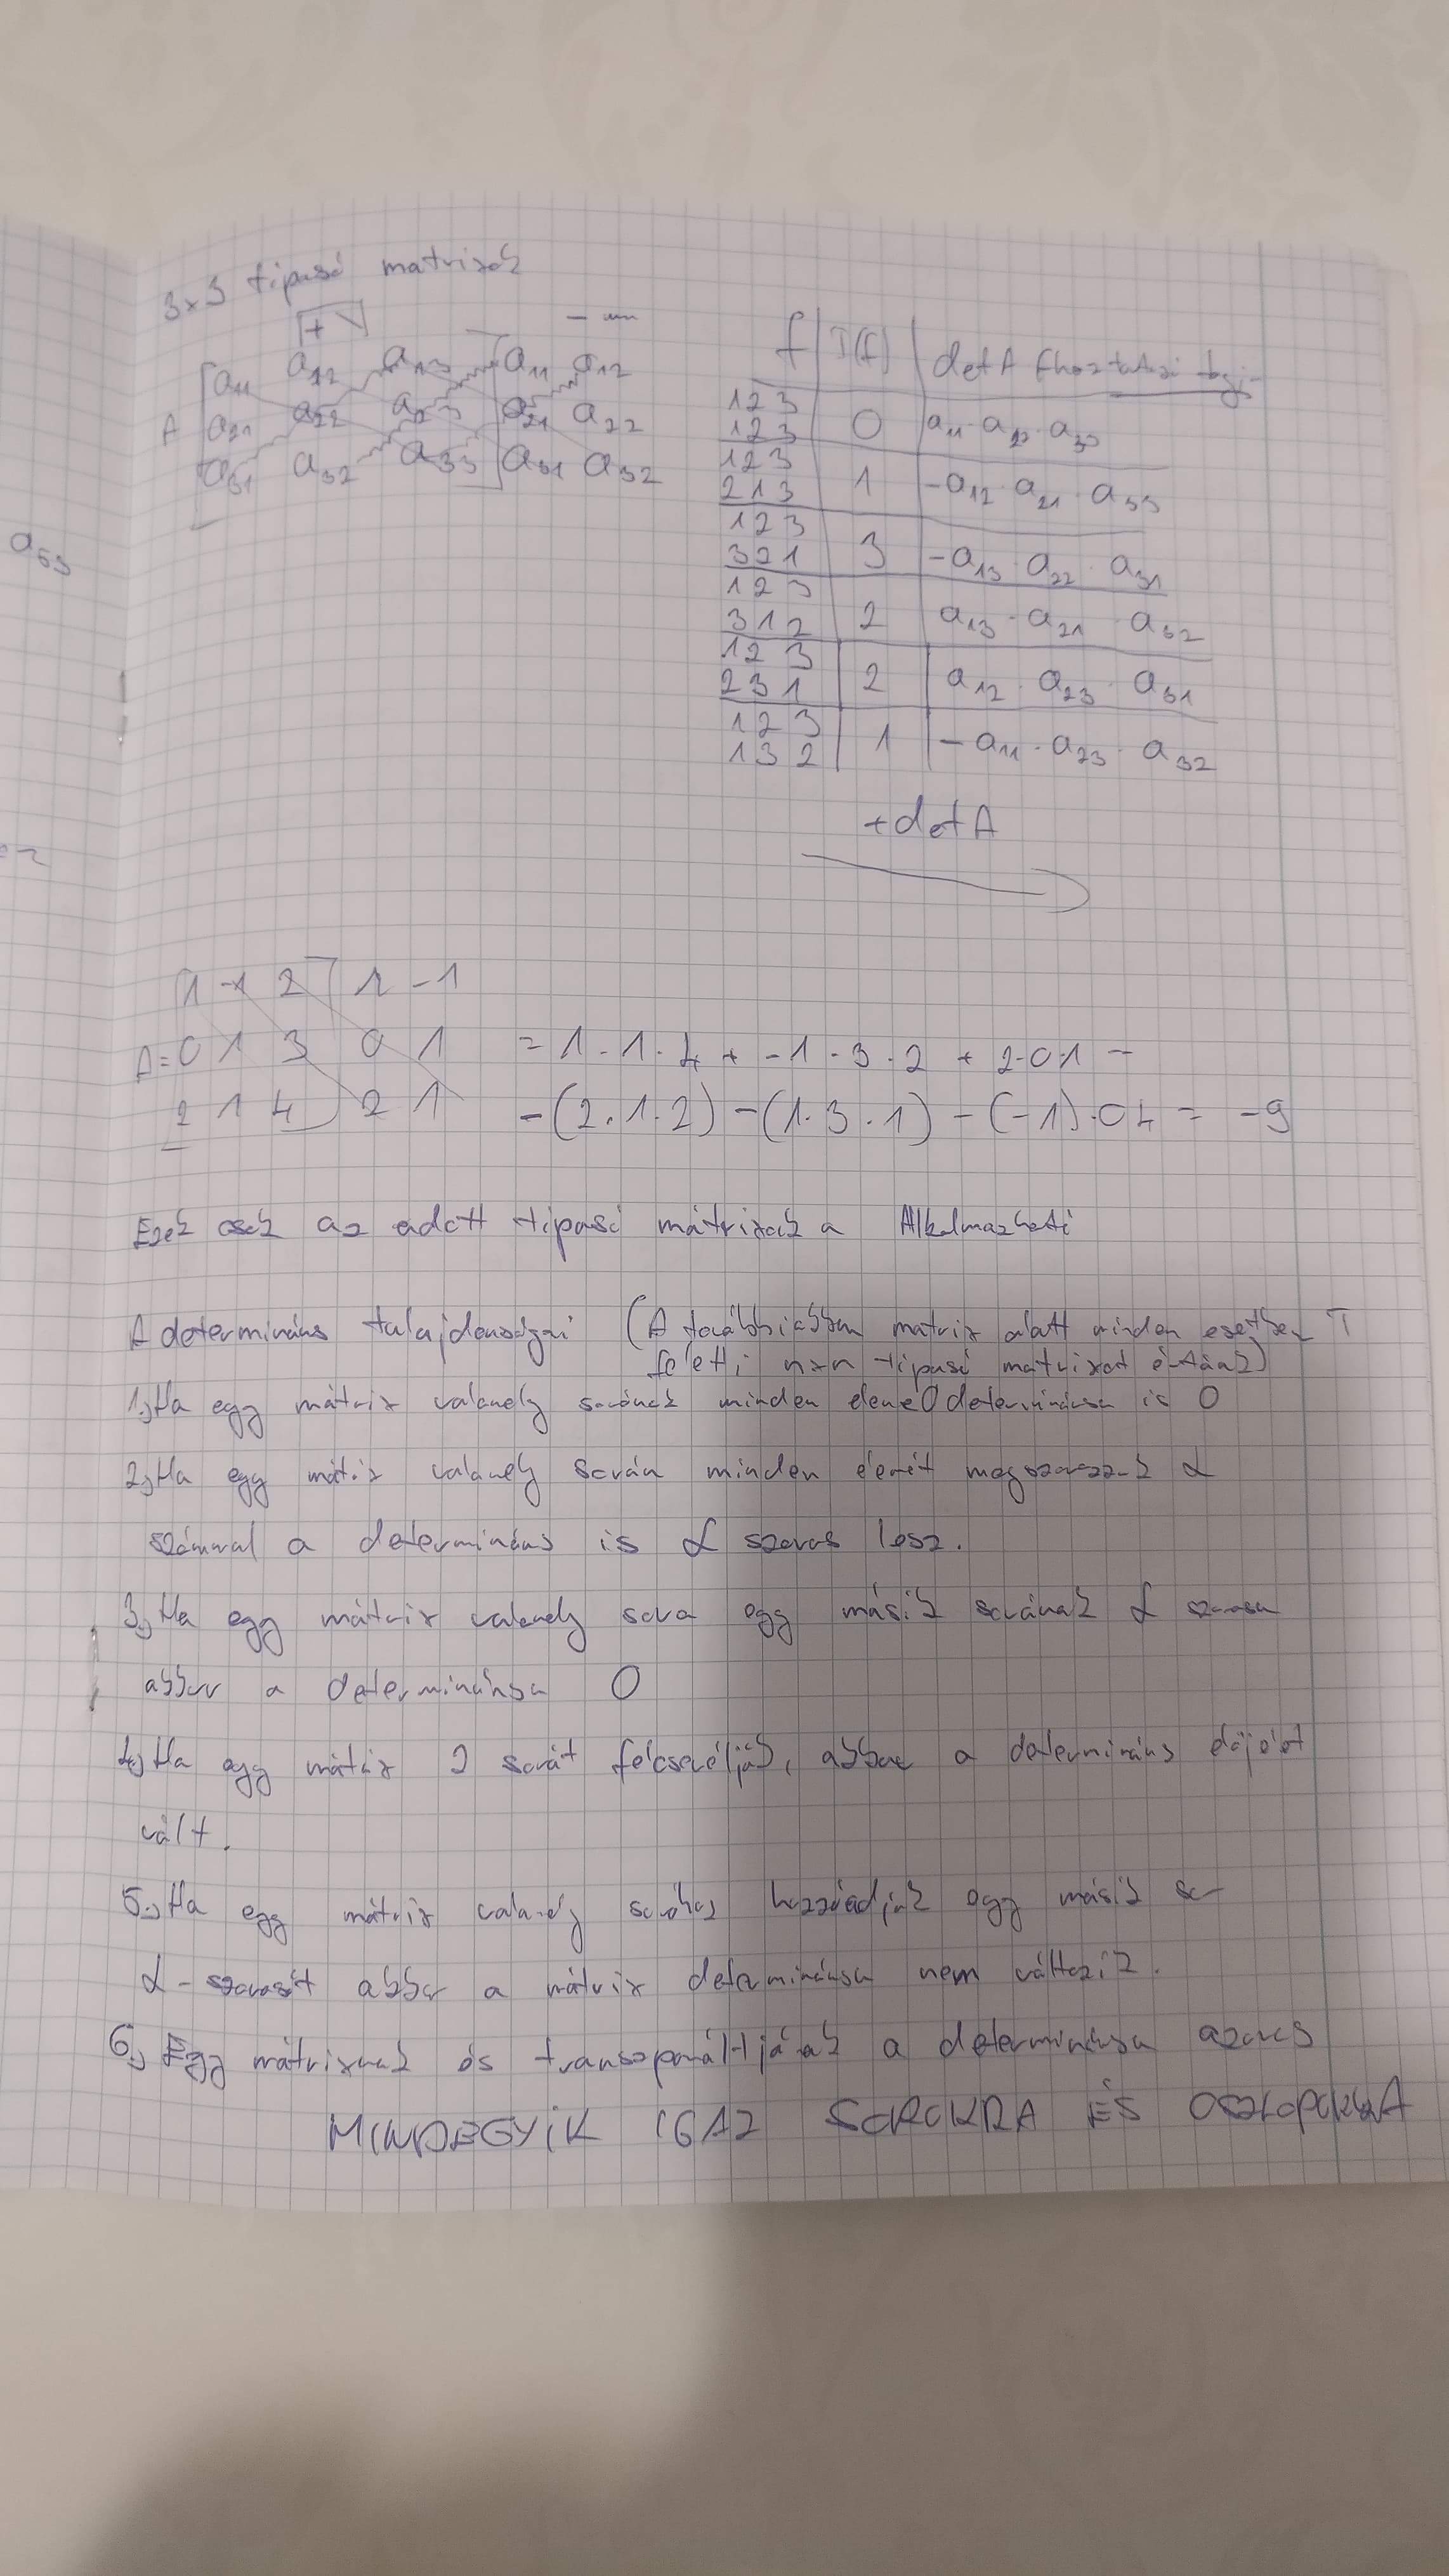 3x3 tipusú matrixok
+ - -
A a11 a12 a13 a11 a12
a21 a22 a23 a21 a22
a31 a32 a33 a31 a32
f | I(f) | detA
123
123 | 0 | a11 · a22 · a33
123
213 | 1 | -a12 · a21 · a33
123
321 | 3 | -a13 · a22 · a31
123
312 | 2 | a13 · a21 · a32
123
231 | 2 | a12 · a23 · a31
123
132 | 1 | -a11 · a23 · a32
+detA
a53
1 -1 2 1 -1
A= 0 1 3 0 1 = 1·1·4 + -1·3·2 + 2·0·1 -
2 1 4 2 1 -(2·1·2) -(1·3·1) -(-1)·0 4 = -9
Ezek csak az adott tipusú mátrixok a Alkalmazható
A determináns tulajdonságai (A továbbiakban matrix alatt minden esetben T
feletti nxn tipusú matrixot értünk)
1.) Ha egy mátrix valamely sorának minden eleme 0 determinánsa is 0
2.) Ha egy mátrix valamely során minden elemét megszorozzuk α
számmal a determináns is α szoros lesz.
3.) Ha egy mátrix valamely sora egy másik sorának α szorosa
akkor a determinánsa 0
4.) Ha egy mátrix 2 sorát felcseréljük, akkor a determináns előjelet
vált.
5.) Ha egy mátrix valamely sorához hozzáadjuk egy másik sor
α-szorosát akkor a mátrix determinánsa nem változik.
6.) Egy mátrixnak és transzponáltjának a determinánsa azonos
MINDEGYIK IGAZ SOROKRA ÉS OSZLOPOKRA